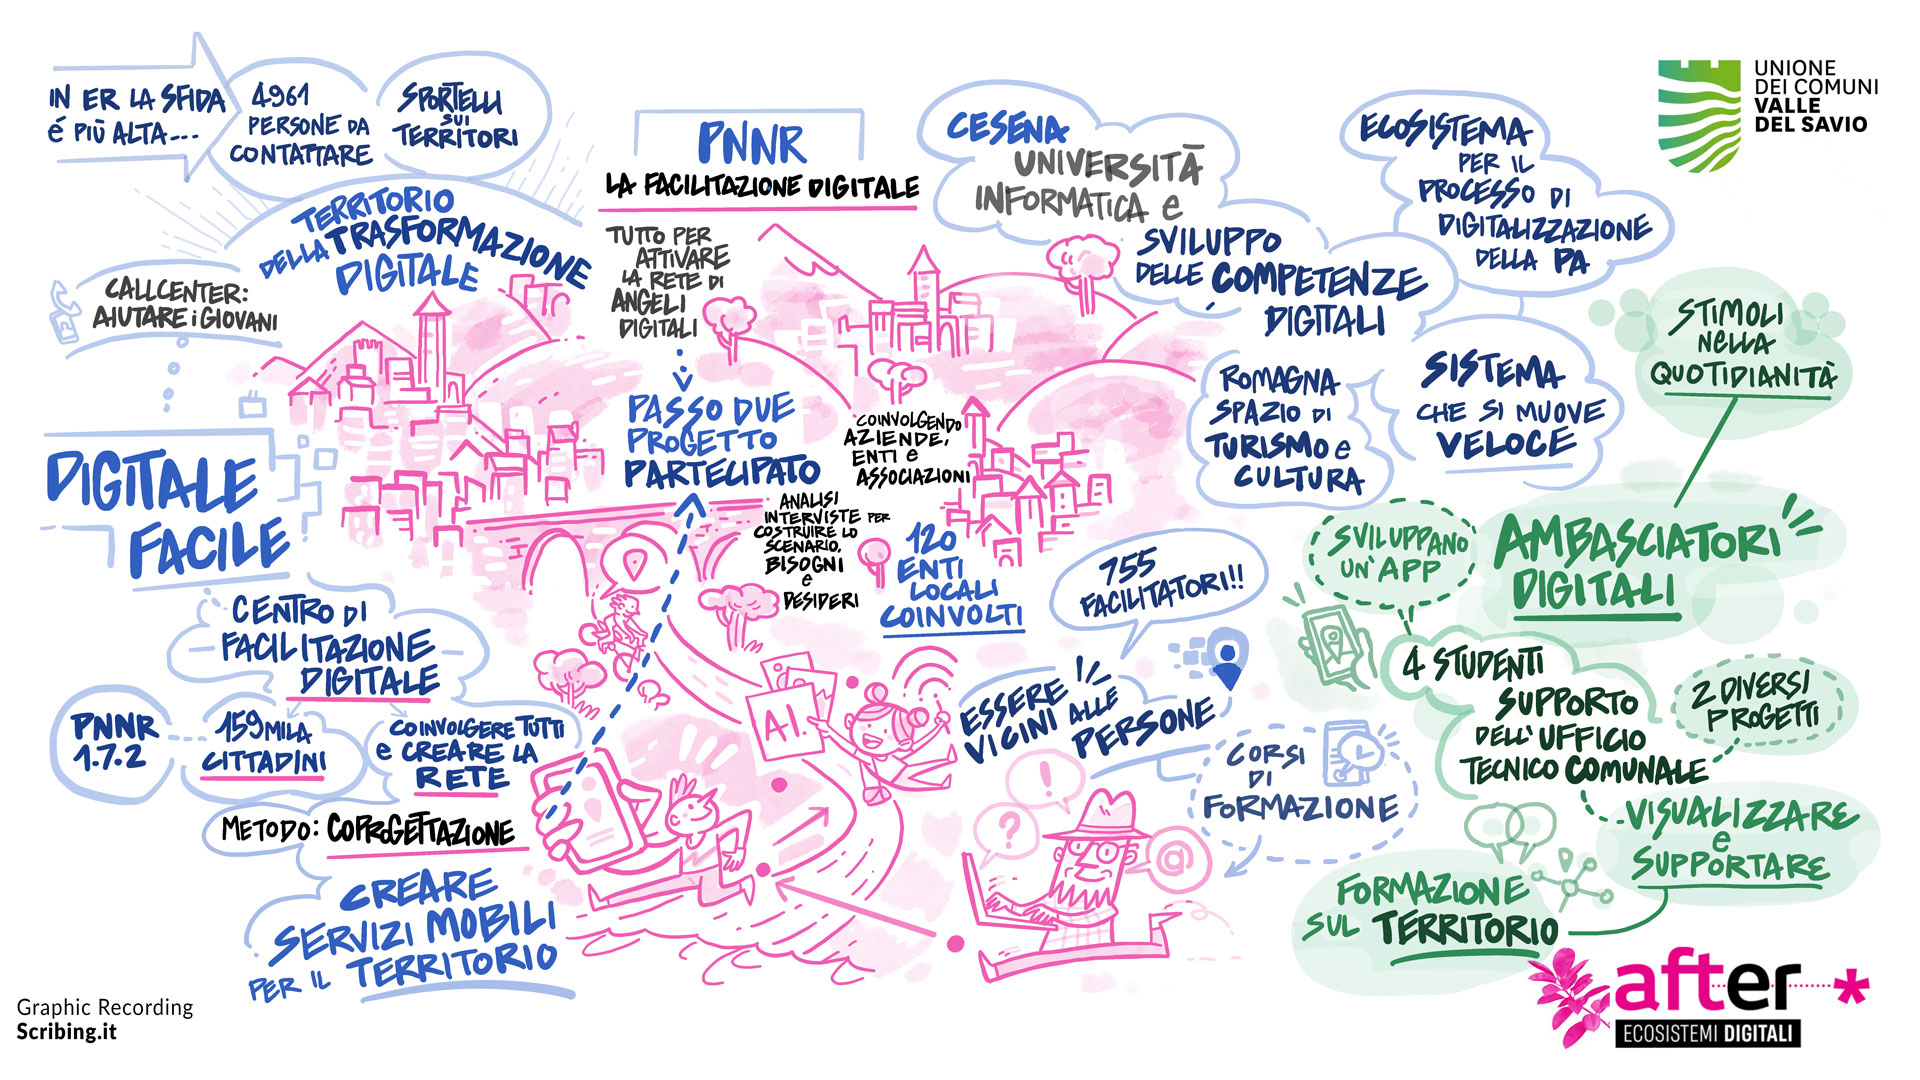 IN ER LA SFIDA
é PIÙ ALTA...
4961
PERSONE DA
CONTATTARE
SPORTELLI
SUI
TERRITORI
TERRITORIO
DELLA TRASFORMAZIONE
DIGITALE
CALLCENTER:
AIUTARE i GIOVANI
DIGITALE
FACILE
CENTRO DI
FACILITAZIONE
DIGITALE
PNNR
1.7.2
159MILA
CITTADINI
COINVOLGERE TUTTI
e CREARE LA
RETE
METODO: COPROGETTAZIONE
CREARE
SERVIZI MOBILI
PER IL TERRITORIO
PNNR
LA FACILITAZIONE DIGITALE
TUTTO PER
ATTIVARE
LA RETE DI
ANGELI
DIGITALI
PASSO DUE
PROGETTO
PARTECIPATO
COINVOLGENDO
AZIENDE,
ENTI e
ASSOCIAZIONI
ANALISI
INTERVISTE PER
COSTRUIRE LO
SCENARIO,
BISOGNI
e
DESIDERI
120
ENTI
LOCALI
COINVOLTI
A.I.
755
FACILITATORI!!
ESSERE
VICINI ALLE
PERSONE
CORSI
DI
FORMAZIONE
!
?
@
CESENA
UNIVERSITÀ
INFORMATICA e
SVILUPPO
DELLE COMPETENZE
DIGITALI
ECOSISTEMA
PER IL
PROCESSO DI
DIGITALIZZAZIONE
DELLA PA
ROMAGNA
SPAZIO DI
TURISMO e
CULTURA
SISTEMA
CHE SI MUOVE
VELOCE
STIMOLI
NELLA
QUOTIDIANITÀ
AMBASCIATORI
DIGITALI
SVILUPPANO
UN'APP
4 STUDENTI
SUPPORTO
DELL'UFFICIO
TECNICO COMUNALE
2 DIVERSI
PROGETTI
VISUALIZZARE
e
SUPPORTARE
FORMAZIONE
SUL TERRITORIO
UNIONE
DEI COMUNI
VALLE
DEL SAVIO
after *
ECOSISTEMI DIGITALI
Graphic Recording
Scribing.it